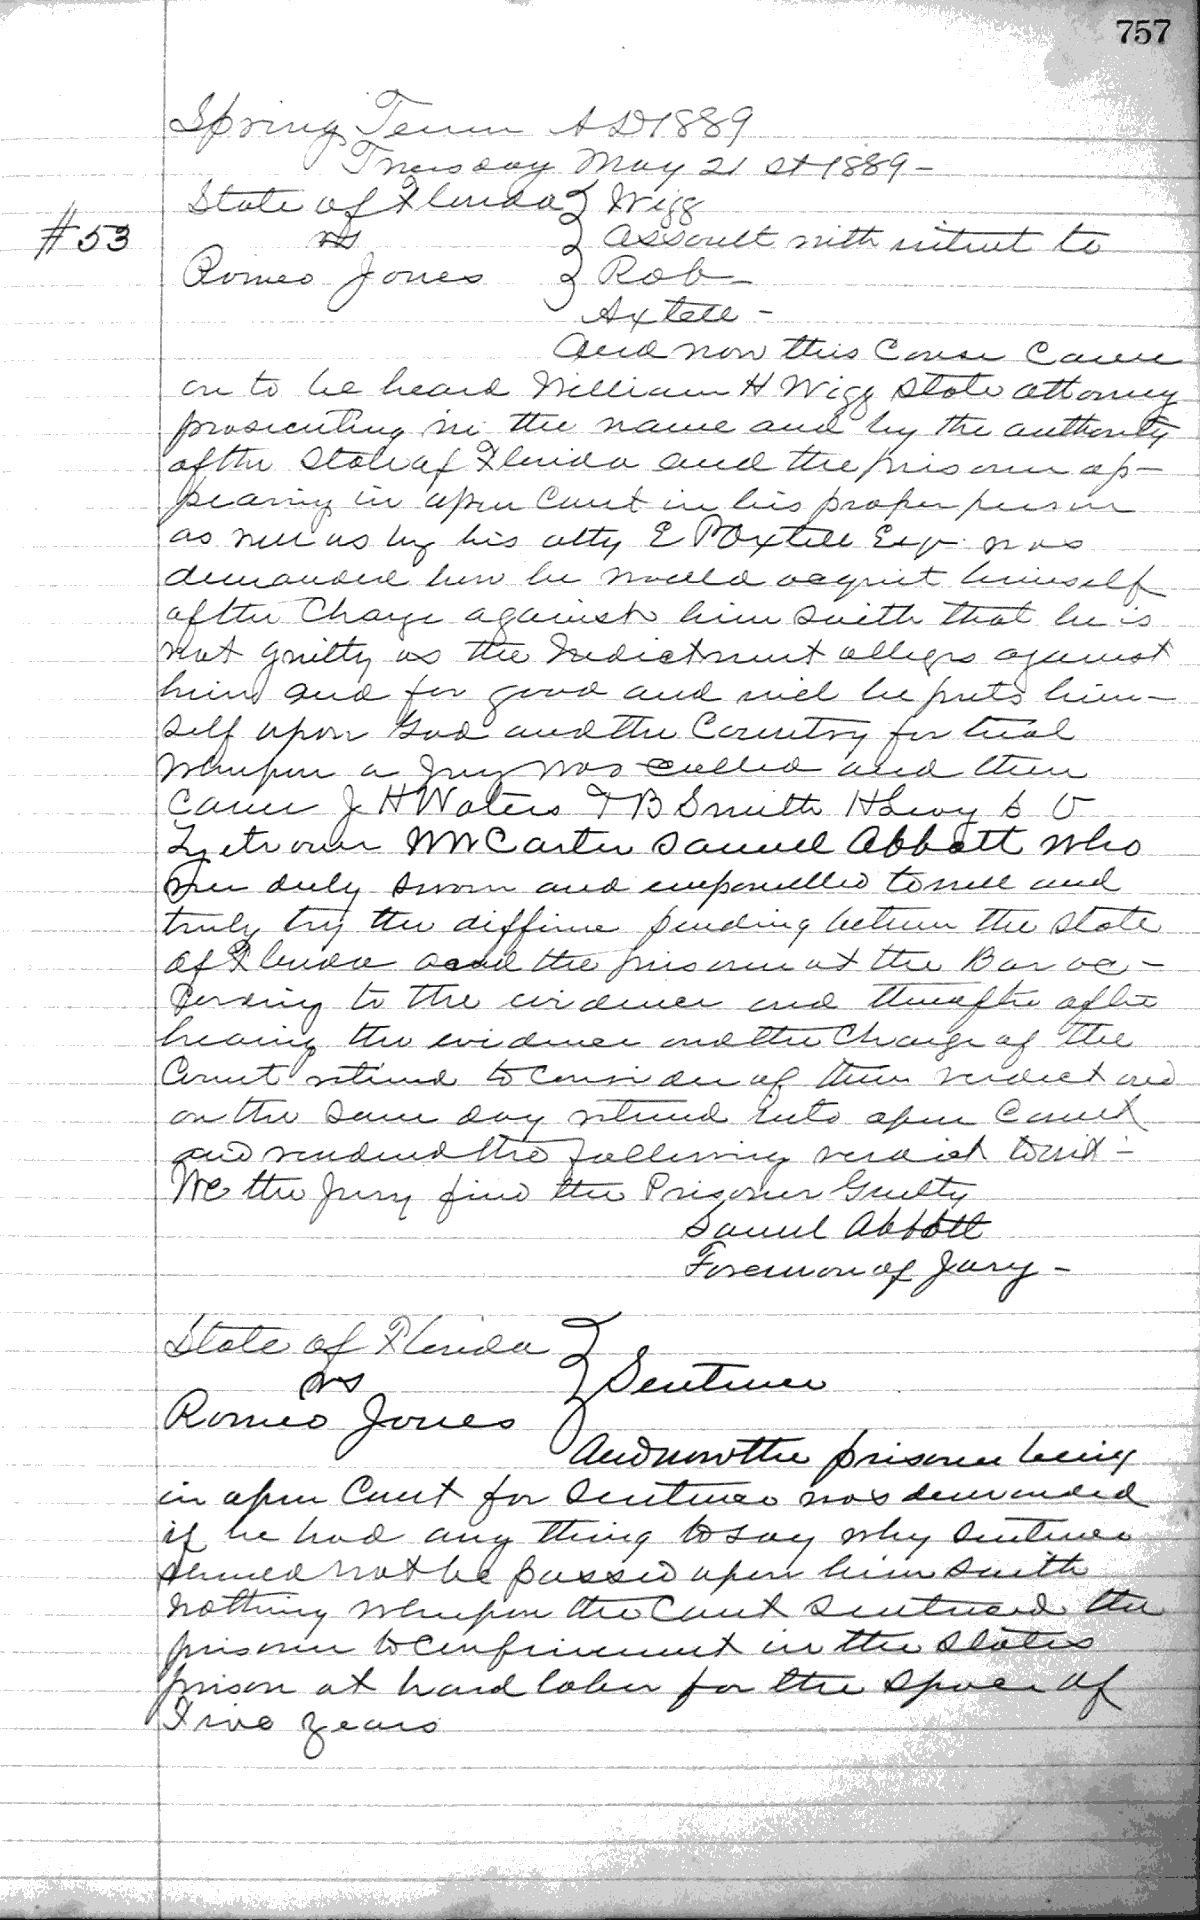 757
Spring Term AD 1889
Tuesday May 21st 1889 -
State of Florida } Wigg
#53 vs } Assault with intent to
Romeo Jones } Rob -
Axtell -
And now this Cause Came
on to be heard William H Wigg State attorney
prosecuting in the name and by the authority
of the State of Florida and the prisoner ap-
pearing in open Court in his proper person
as well as by his atty E P Axtell Esq. was
demanded how he would acquit himself
of the Charge against him saith that he is
not guilty as the Indictment alleges against
him and for good and well he puts him-
self upon God and the Country for trial
Whereupon a Jury was called and then
Came J H Waters T B Smith H Levy
W W Carter Samuel Abbott who
were duly sworn and empanelled to well and
truly try the difference pending between the State
of Florida and the prisoner at the Bar ac-
cording to the evidence and thereafter after
hearing the evidence and the Charge of the
Court retired to consider of their verdict and
on the same day returned into open Court
and rendered the following verdict towit -
We the Jury find the Prisoner Guilty
Samuel Abbott
Foreman of Jury -
State of Florida }
vs } Sentence
Romeo Jones }
And now the prisoner being
in open Court for Sentence was demanded
if he had any thing to say why Sentence
should not be passed upon him saith
nothing whereupon the Court sentenced the
prisoner to confinement in the States
prison at hard labor for the space of
Five years